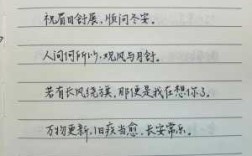 祝眉目舒展，顺问冬安。
人间何所以，观风与月舒。
若有长风绕旗，那便是我在想你了。
万物更新，旧疾当愈，长安常乐。